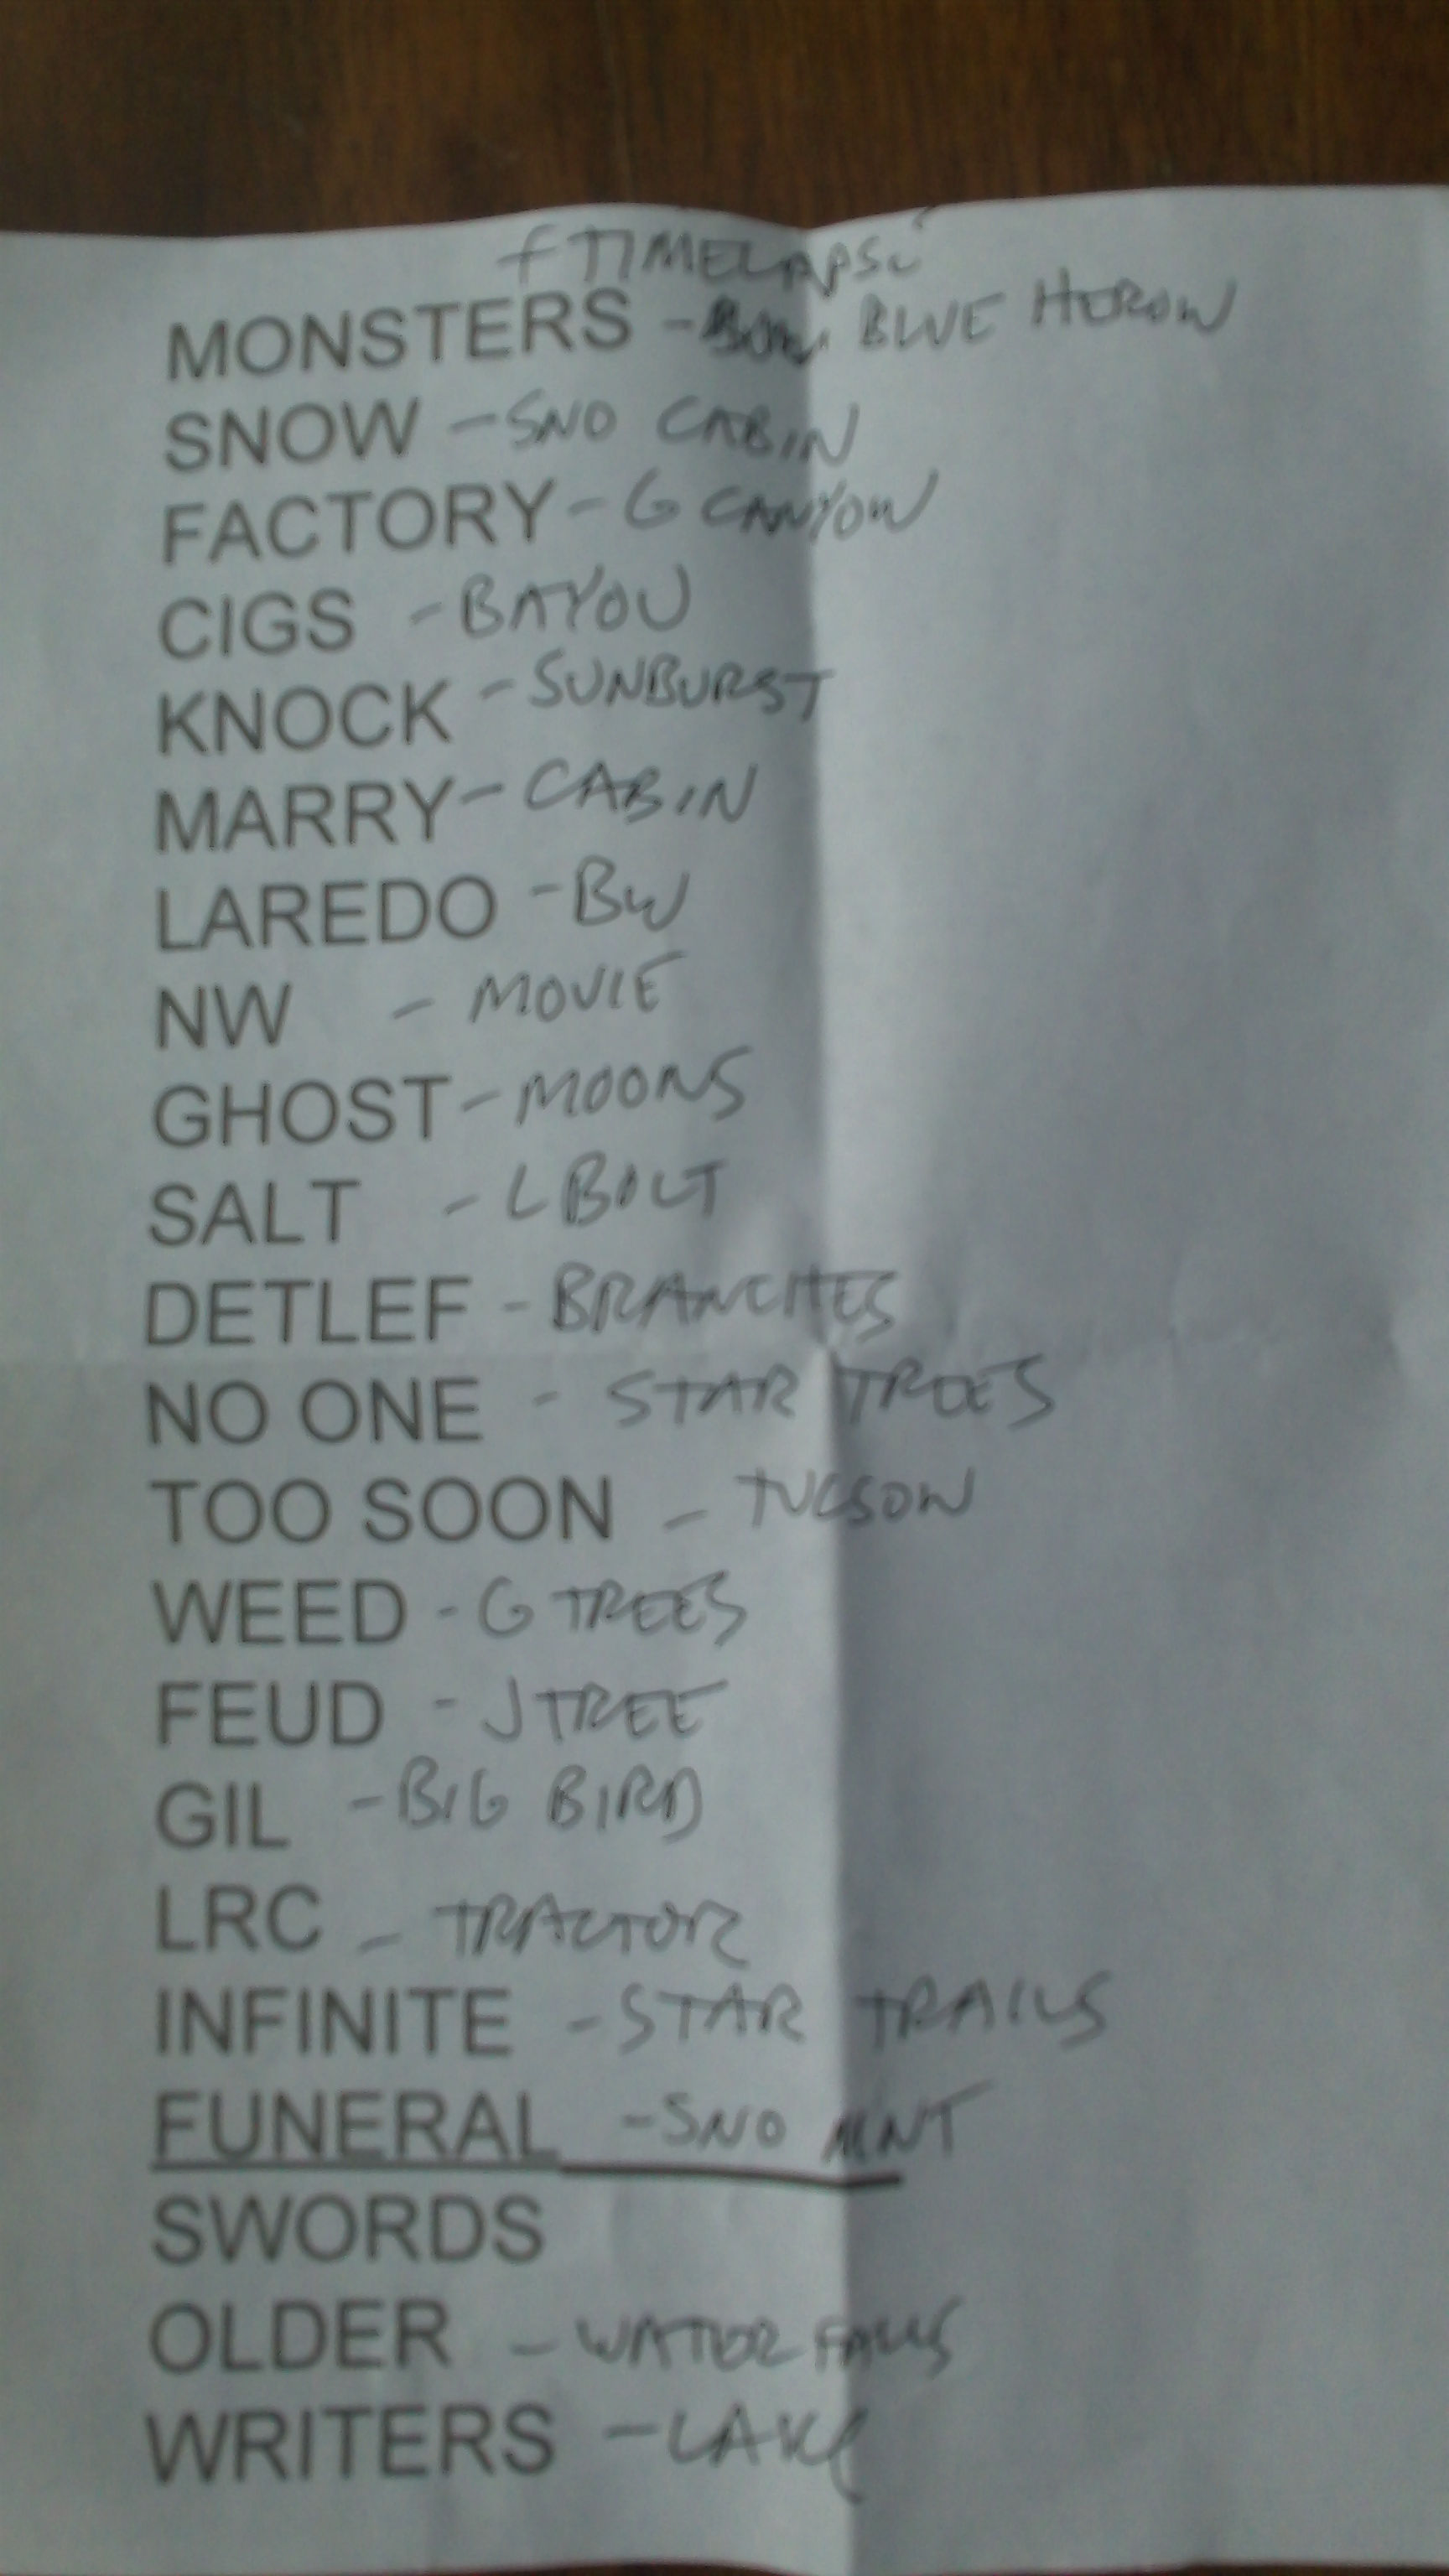 + TIMELAPSE
MONSTERS - BLUE HERON
SNOW - SNO CABIN
FACTORY - G CANYON
CIGS - BAYOU
KNOCK - SUNBURST
MARRY - CABIN
LAREDO - BW
NW - MOVIE
GHOST - MOONS
SALT - L BOLT
DETLEF - BRANCHES
NO ONE - STAR TREES
TOO SOON - TUCSON
WEED - G TREES
FEUD - J TREE
GIL - BIG BIRD
LRC - TRACTOR
INFINITE - STAR TRAILS
FUNERAL - SNO MNT
SWORDS
OLDER - WATER FALLS
WRITERS - LAKE